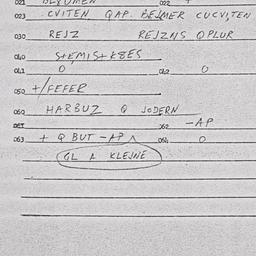 021 BLBUMEN 022 +
023 .CVITEN QAP. BEJMER CUCVITEN
030 REJZ REJZNS QPLUR
040 S+EMIS+KSES
041 0 042 0
050 +/FEFER
060 HARBUZ Q JODERN
062 -AP
063 + Q BUT -AP 064 0
GL A KLEJNE